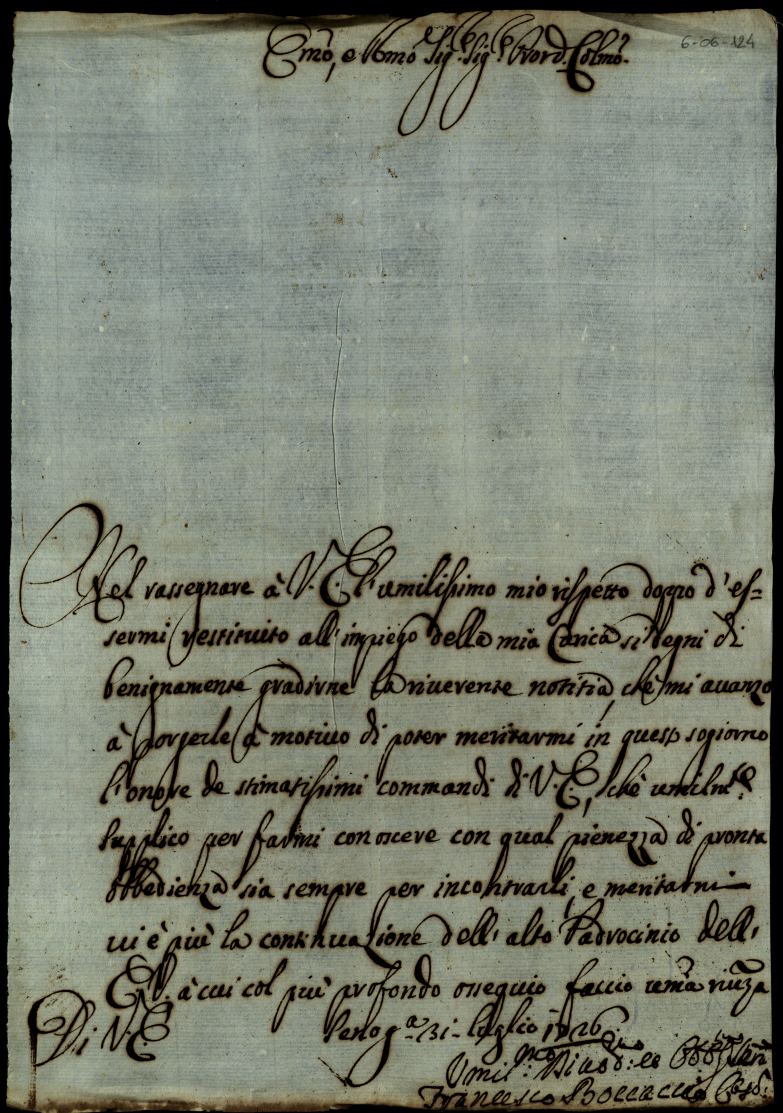 6-06-124
Emo, e Rmo Sig.e Sig.e Prone Colmo
Nel rassegnare à V. E. l'umilissimo mio rispetto doppo d'es=
sermi restituito all'impiego della mia Carica si degni di
benignamente gradirne la riverente notitia, che mi avanzo
à porgerle à motivo di poter meritarmi in questo sogiorno
l'onore de stimatissimi commandi di V. E., che umilmte
supplico per farmi conoscere con qual pienezza di pronta
obbedienza sia sempre per incontrarli, e meritarmi
vi è più la continuazione dell'alto Padrocinio dell'
E. V. à cui col più profondo ossequio faccio uma riuza
Di V. E.
31 luglio 1726
Umil.mo Divo
Francesco Boccaccio